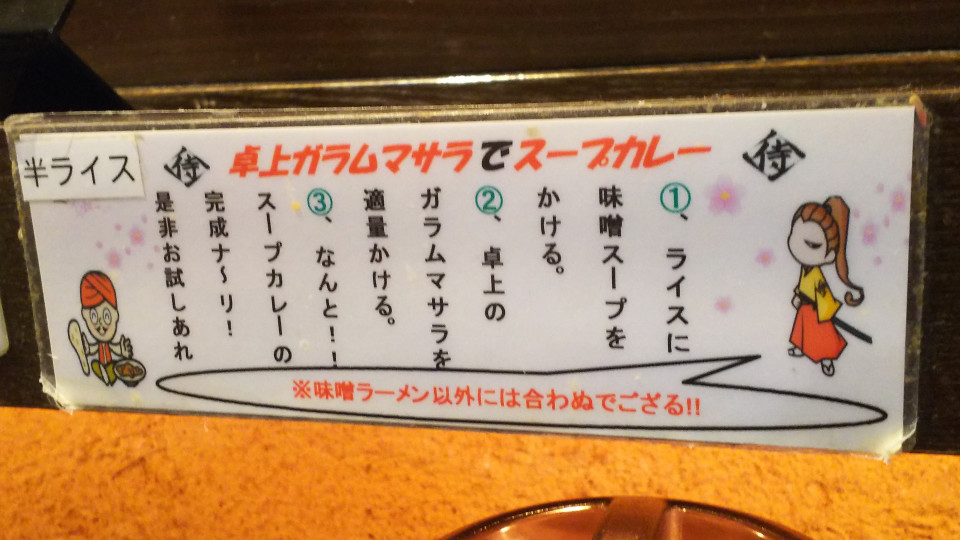 半ライス
侍 卓上ガラムマサラでスープカレー 侍
①、ライスに
味噌スープを
かける。
②、卓上の
ガラムマサラを
適量かける。
③、なんと！！
スープカレーの
完成ナ〜リ！
是非お試しあれ
※味噌ラーメン以外には合わぬでござる!!